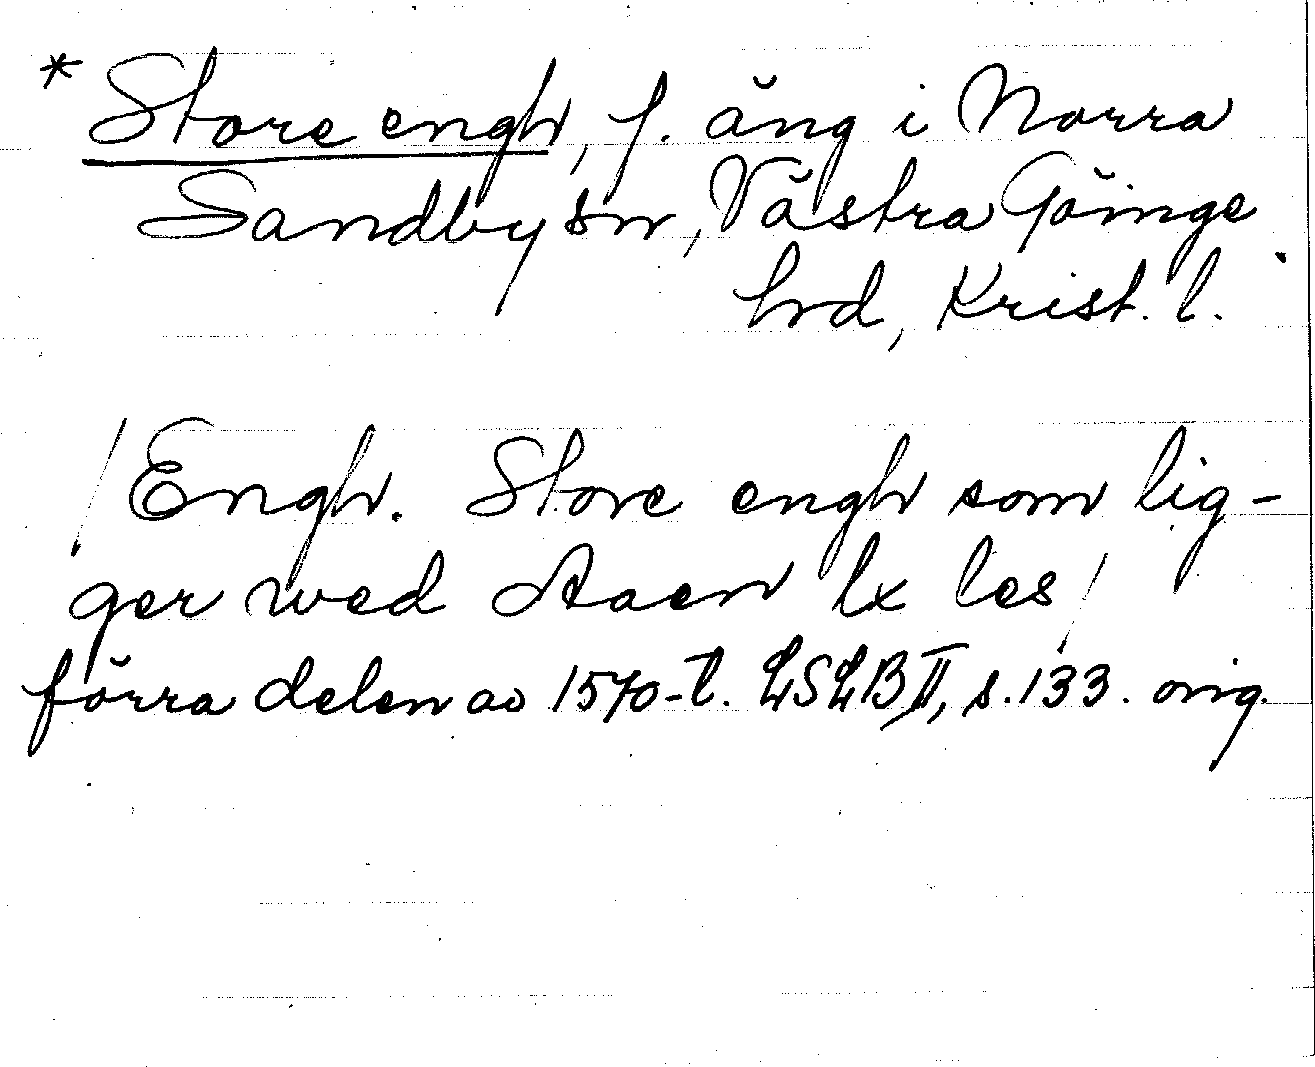 * Store engh, f. äng i Norra
Sandby sn, Västra Göinge
hrd, Krist. l.
/ Engh. Store engh som lig-
ger wed Aaen lx les /
förra delen av 1570-t. LSLB II, s. 133. orig.